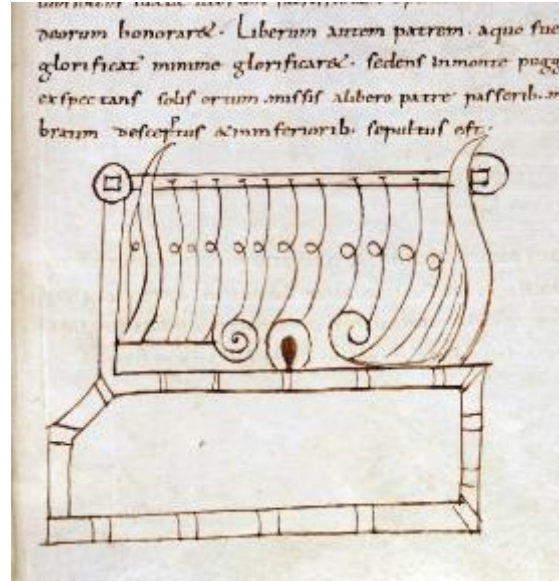 deorum honorare&. Liberum autem patrem. aquo fue
glorificat minime glorificare&. sedens inmonte pugg
exspectans solis ortum. missis alibero patre passerib. m
braum & inferiorib. sepultus est.